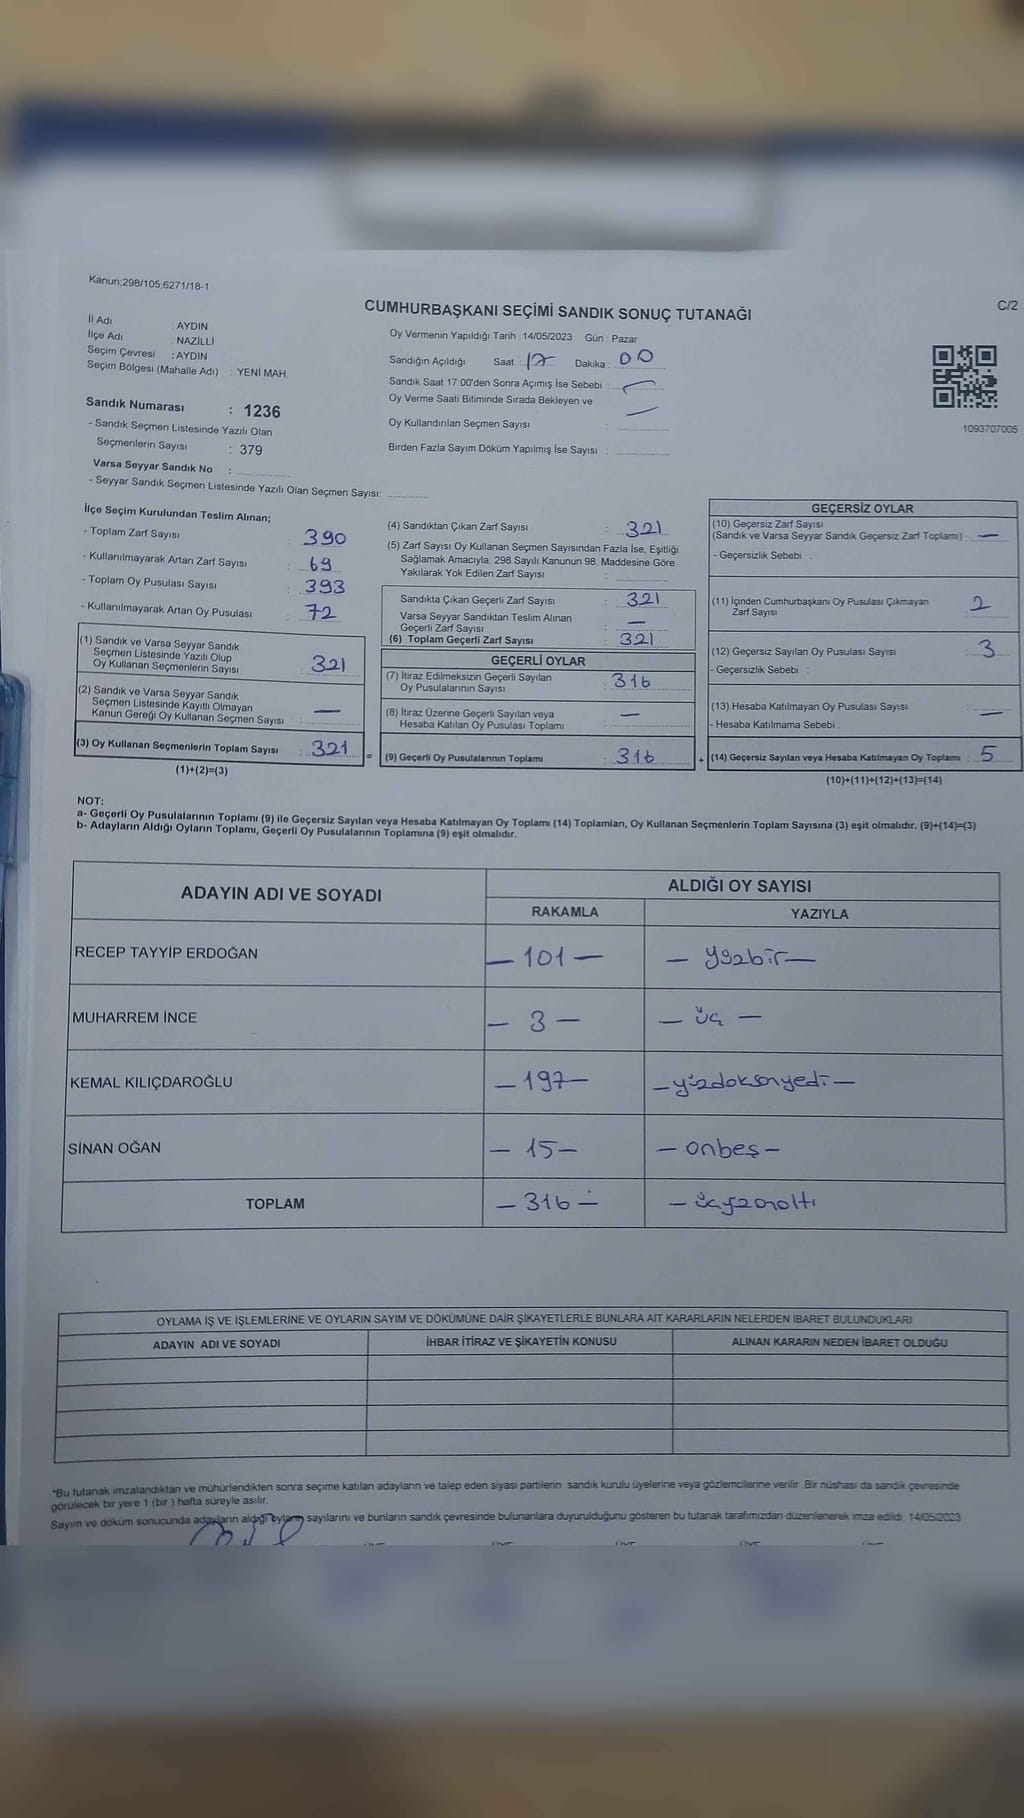 Kanun;298/105,6271/18-1
CUMHURBAŞKANI SEÇİMİ SANDIK SONUÇ TUTANAĞI
C/2
İl Adı : AYDIN
İlçe Adı : NAZİLLİ
Seçim Çevresi : AYDIN
Seçim Bölgesi (Mahalle Adı) : YENİ MAH.
Sandık Numarası : 1236
- Sandık Seçmen Listesinde Yazılı Olan
Seçmenlerin Sayısı : 379
Varsa Seyyar Sandık No :
- Seyyar Sandık Seçmen Listesinde Yazılı Olan Seçmen Sayısı:
Oy Vermenin Yapıldığı Tarih : 14/05/2023 Gün : Pazar
Sandığın Açıldığı Saat : 17 Dakika : 00
Sandık Saat 17:00'den Sonra Açımış İse Sebebi : —
Oy Verme Saati Bitiminde Sırada Bekleyen ve
Oy Kullandırılan Seçmen Sayısı : —
Birden Fazla Sayım Döküm Yapılmış İse Sayısı :
1093707005
İlçe Seçim Kurulundan Teslim Alınan;
- Toplam Zarf Sayısı : 390
- Kullanılmayarak Artan Zarf Sayısı : 69
- Toplam Oy Pusulası Sayısı : 393
- Kullanılmayarak Artan Oy Pusulası : 72
(1) Sandık ve Varsa Seyyar Sandık
Seçmen Listesinde Yazılı Olup
Oy Kullanan Seçmenlerin Sayısı : 321
(2) Sandık ve Varsa Seyyar Sandık
Seçmen Listesinde Kayıtlı Olmayan
Kanun Gereği Oy Kullanan Seçmen Sayısı : —
(3) Oy Kullanan Seçmenlerin Toplam Sayısı : 321
(1)+(2)=(3)
(4) Sandıktan Çıkan Zarf Sayısı : 321
(5) Zarf Sayısı Oy Kullanan Seçmen Sayısından Fazla İse, Eşitliği
Sağlamak Amacıyla, 298 Sayılı Kanunun 98. Maddesine Göre
Yakılarak Yok Edilen Zarf Sayısı :
Sandıkta Çıkan Geçerli Zarf Sayısı : 321
Varsa Seyyar Sandıktan Teslim Alınan
Geçerli Zarf Sayısı : —
(6) Toplam Geçerli Zarf Sayısı : 321
GEÇERLİ OYLAR
(7) İtiraz Edilmeksizin Geçerli Sayılan
Oy Pusulalarının Sayısı : 316
(8) İtiraz Üzerine Geçerli Sayılan veya
Hesaba Katılan Oy Pusulası Toplamı : —
= (9) Geçerli Oy Pusulalarının Toplamı : 316
GEÇERSİZ OYLAR
(10) Geçersiz Zarf Sayısı
(Sandık ve Varsa Seyyar Sandık Geçersiz Zarf Toplamı) : —
- Geçersizlik Sebebi :
(11) İçinden Cumhurbaşkanı Oy Pusulası Çıkmayan
Zarf Sayısı : 2
(12) Geçersiz Sayılan Oy Pusulası Sayısı : 3
- Geçersizlik Sebebi :
(13) Hesaba Katılmayan Oy Pusulası Sayısı : —
- Hesaba Katılmama Sebebi :
+ (14) Geçersiz Sayılan veya Hesaba Katılmayan Oy Toplamı : 5
(10)+(11)+(12)+(13)=(14)
NOT:
a- Geçerli Oy Pusulalarının Toplamı (9) ile Geçersiz Sayılan veya Hesaba Katılmayan Oy Toplamı (14) Toplamları, Oy Kullanan Seçmenlerin Toplam Sayısına (3) eşit olmalıdır. (9)+(14)=(3)
b- Adayların Aldığı Oyların Toplamı, Geçerli Oy Pusulalarının Toplamına (9) eşit olmalıdır.
ADAYIN ADI VE SOYADI
ALDIĞI OY SAYISI
RAKAMLA YAZIYLA
RECEP TAYYİP ERDOĞAN — 101 — — yüzbir —
MUHARREM İNCE — 3 — — üç —
KEMAL KILIÇDAROĞLU — 197 — — yüzdoksanyedi —
SİNAN OĞAN — 15 — — onbeş —
TOPLAM — 316 — — üçyüzonaltı
OYLAMA İŞ VE İŞLEMLERİNE VE OYLARIN SAYIM VE DÖKÜMÜNE DAİR ŞİKAYETLERLE BUNLARA AİT KARARLARIN NELERDEN İBARET BULUNDUKLARI
ADAYIN ADI VE SOYADI İHBAR İTİRAZ VE ŞİKAYETİN KONUSU ALINAN KARARIN NEDEN İBARET OLDUĞU
*Bu tutanak imzalandıktan ve mühürlendikten sonra seçime katılan adayların ve talep eden siyasi partilerin sandık kurulu üyelerine veya gözlemcilerine verilir. Bir nüshası da sandık çevresinde
görülecek bir yere 1 (bir ) hafta süreyle asılır.
Sayım ve döküm sonucunda adayların aldığı oyların sayılarını ve bunların sandık çevresinde bulunanlara duyurulduğunu gösteren bu tutanak tarafımızdan düzenlenerek imza edildi. 14/05/2023